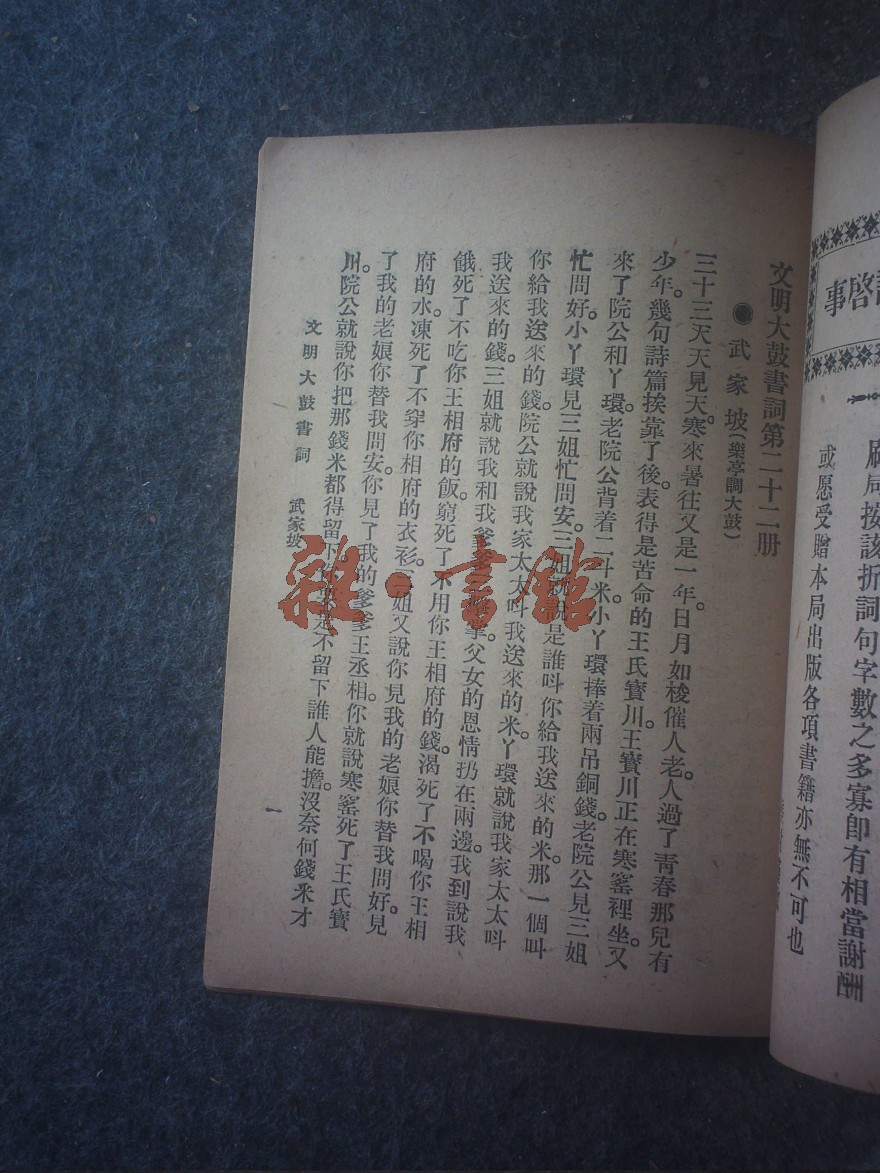 事啓
刷局按該折詞句字數之多寡卽有相當謝酬
或愿受贈本局出版各項書籍亦無不可也
文明大鼓書詞第二十二册
●武家坡(樂亭調大鼓)
三十三天天見天。寒來暑往又是一年。日月如梭催人老。人過了靑春那兒有
少年。幾句詩篇挨靠了後。表得是苦命的王氏寶川。王寶川正在寒窰裡坐。又
來了院公和丫環。老院公背着二斗米。小丫環捧着兩吊銅錢。老院公見三姐
忙問好。小丫環見三姐忙問安。三姐就說是誰呌你給我送來的米。那一個叫
你給我送來的錢。院公就說我家太太呌我送來的米。丫環就說我家太太呌
我送來的錢。三姐就說我和我爹爹三擊掌。父女的恩情扔在兩邊。我到說我
餓死了不吃你王相府的飯。窮死了不用你王相府的錢。渴死了不喝你王相
府的水。凍死了不穿你相府的衣衫。三姐又說你見我的老娘你替我問好。見
了我的老娘你替我問安。你見了我的爹爹王丞相。你就說寒窰死了王氏寳
川。院公就說你把那錢米都得留下。不留下誰人能擔。沒奈何錢釆才
文明大鼓書詞 武家坡 一
雜·書館